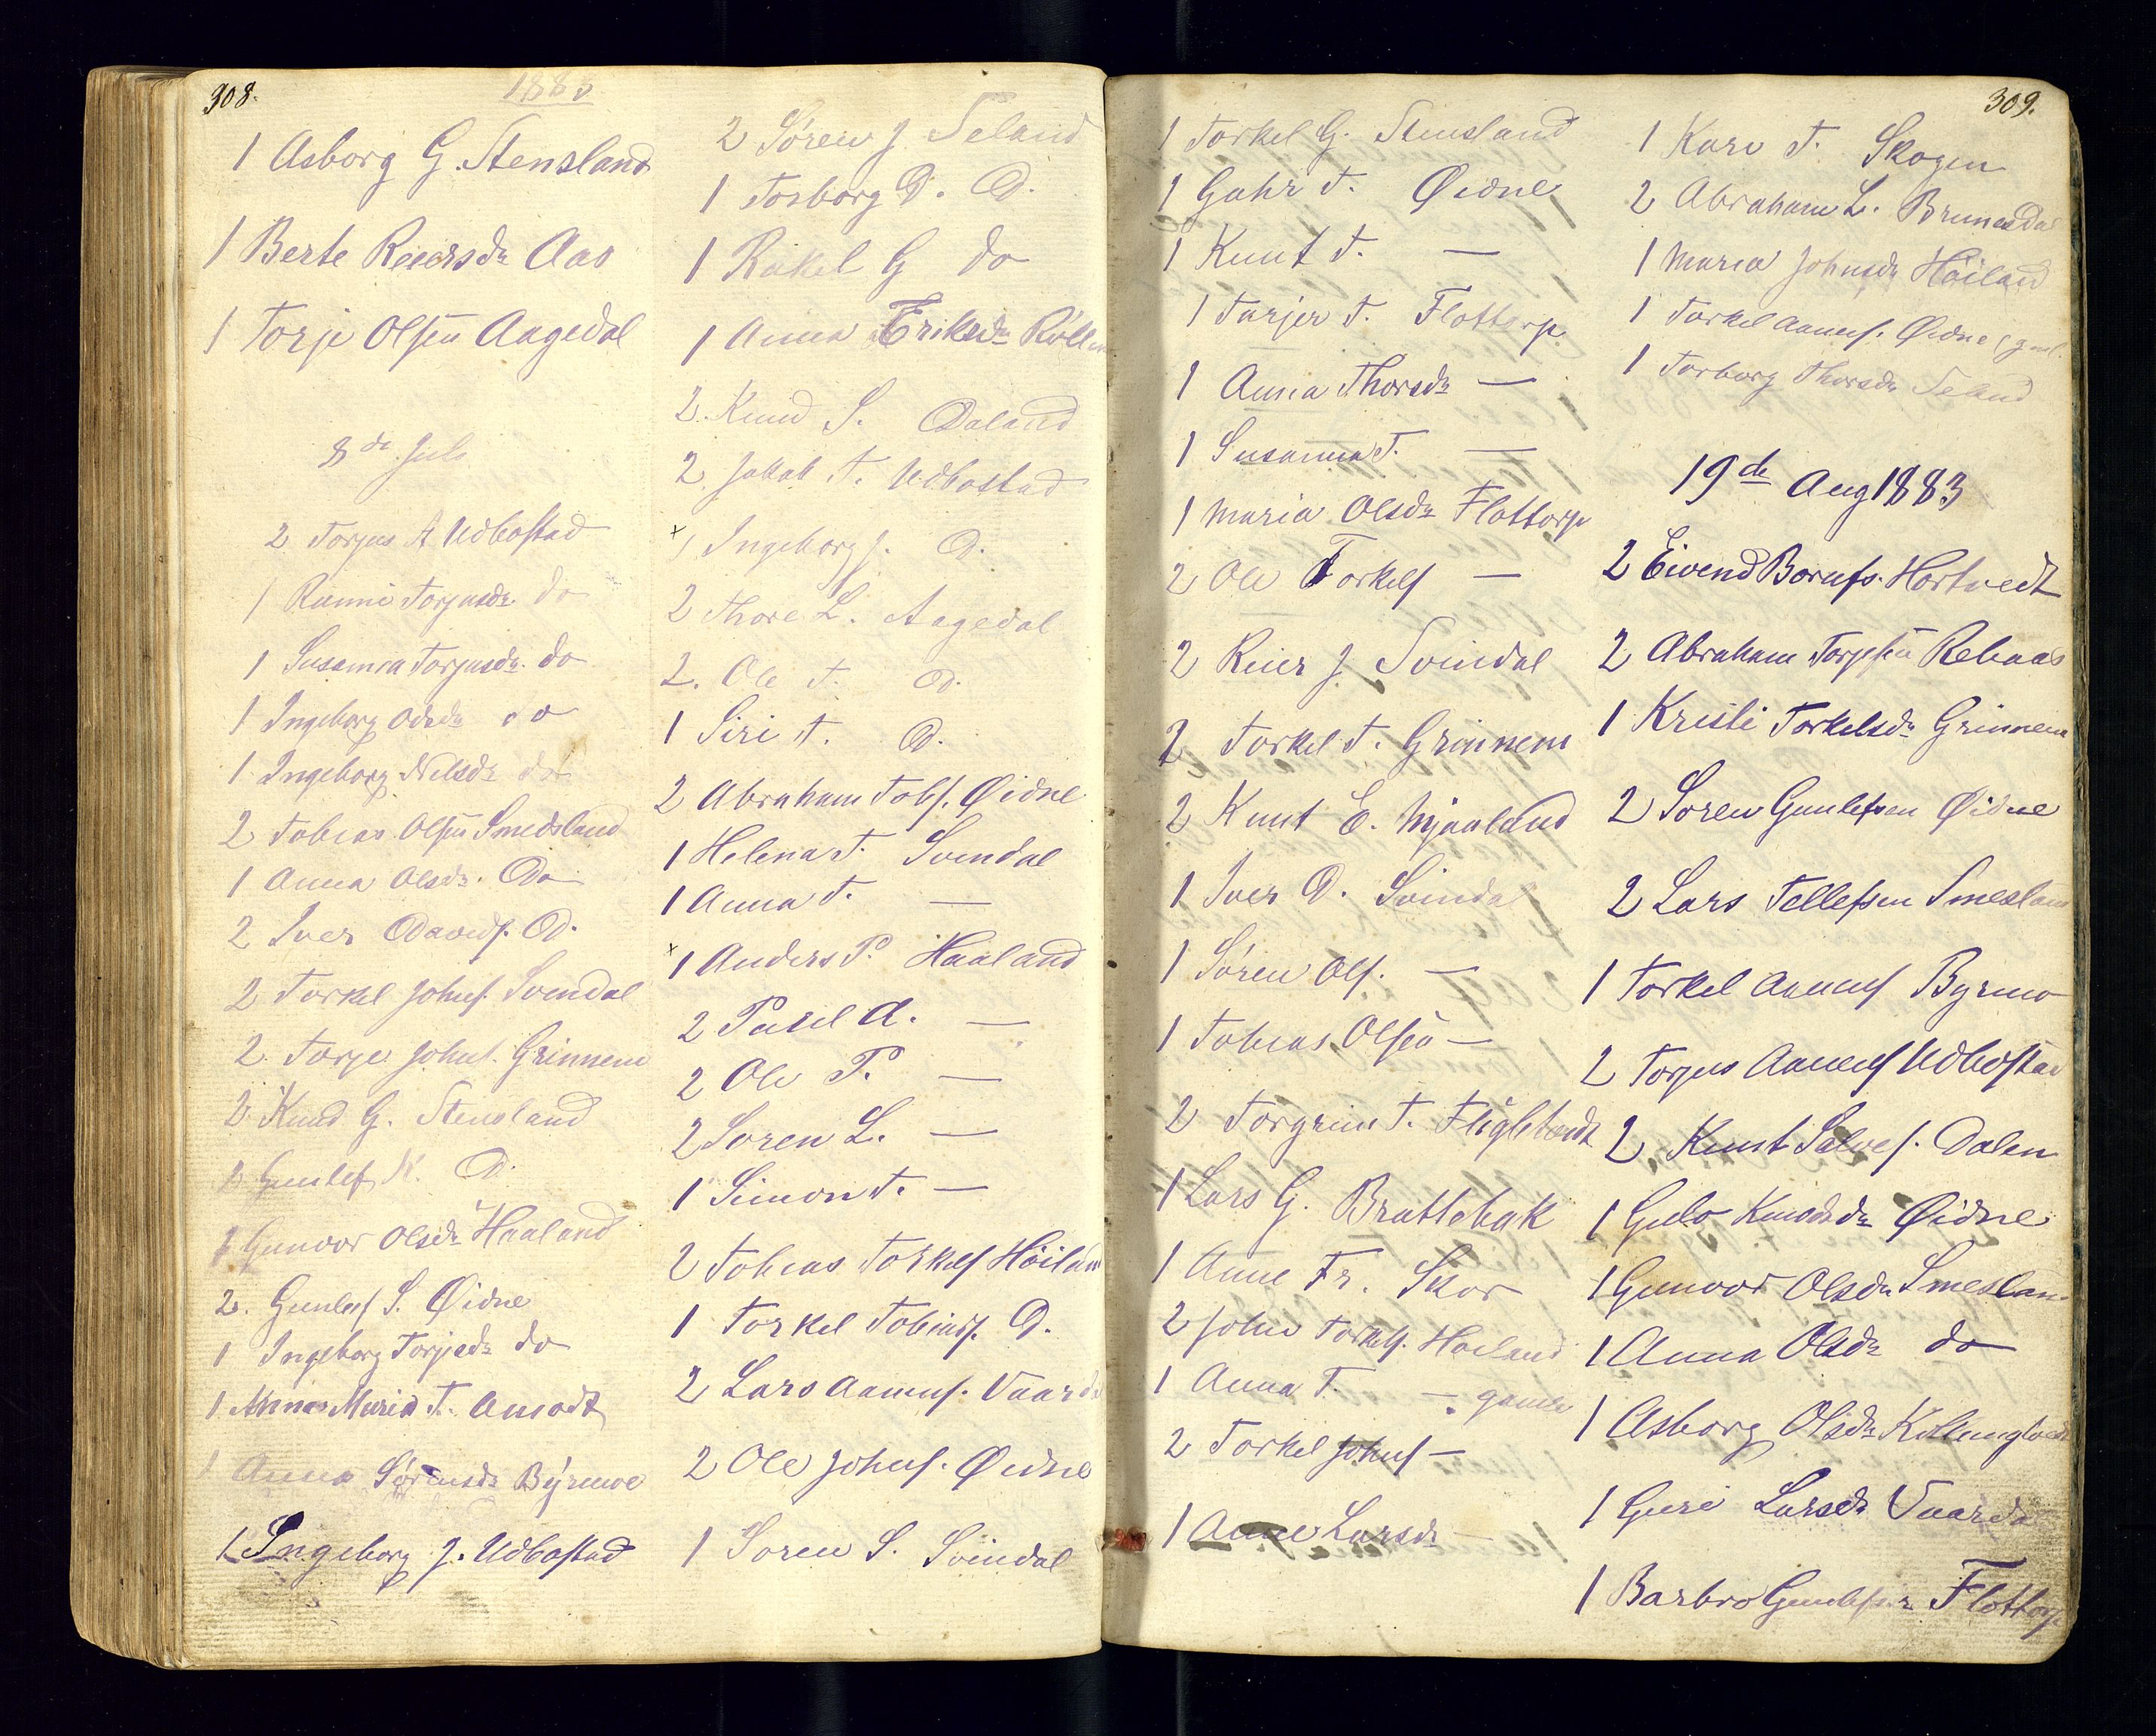 308.
1883
1 Asborg G. Stensland
1 Berte Reiersdr Aas
1 Torje Olsen Aagedal
8de Juli
2 Torjus A Udbostad
1 Ranni Torjusdr. do
1 Susanna Torjusdr. do
1 Ingeborg Odsdr do
1 Ingeborg Nelsdr do
2 Tobias Olsen Smedsland
1 Anna Olsdr. Do
2 Iver Davids. D.
2 Torkel Johns. Svindal
2. Torje Johns. Grinnem
2 Knud G. Stensland
2 Gunlef K. D.
1 Gunvor Olsdr Haaland
2. Gunlefs S. Øidne
1 Ingeborg Torjesdr do
1 Anna Maria T. Amodt
1 Anna Sørensdr Byrmoe
1 Ingeborg J. Udbostad
2 Søren J Seland
1 Torborg D. D.
1 Rakel G do
1 Anna Eriksdr
2. Knud S. Daland
2. Jakob T. Udbostad
x 1 Ingeborg J. D.
2 Thore L. Aagedal
2. Ole T. D.
1 Siri T. D.
2 Abraham Tobs. Øidne
1 Helena T. Svindal
1 Anna T. —
x 1 Anders P. Haaland
2 Paul A. —
2 Ole P. —
2 Soren L. —
1 Simon T. —
2 Tobias Torkels Høiland
1 Torkel Tobias. D.
2 Lars Aanens. Vaarda
2 Ole Johns. Øidne
1 Soren S. Svindal
309.
1 Torkel G. Stensland
1 Guhr T. Øidne
1 Knut T. —
1 Tarjer T. Flottorp
1 Anna Thorsdr —
1 Susanna T. —
1 Maria Olsdr Flottorp
2 Ole Torkels —
2 Reier J Svindal
2 Torkel T. Grinnem
2 Knut E. Mjaaland
1 Iver D. Svindal
1 Søren Ols. —
1 Tobias Olsen —
2 Torgrim T.
1 Lars G. Brattebak
1 Anne Fr. Skor
2 John Torkels. Høiland
1 Anna T. — gamle
2 Torkel Johns —
1 Anne Larsdr —
1 Kari T. Skogen
2 Abraham L. Brunesdal
1 Maria Johnsdr Høiland
1 Torkel Aanens. Øidne (gml.
1 Torborg Thorsdr Seland
19de Aug 1883
2 Eivend Borufs. Hortvedt
2 Abraham Torjesen Rebaas
1 Kristi Torkelsdr Grinnem
2 Soren Gunlefsen Øidne
2 Lars Tellefsen Smesland
1 Torkel Aanens Byrmo
2 Torjus Aanens Udbostad
2 Knut Salves. Dalen
1 Gulo Knudsdr Øidne
1 Gunvor Olsdr Smesland
1 Anna Olsdr do
1 Asborg Olsdr
1 Guri Larsdr Vaarda
1 Barbro Gunlefsdr Flottorp